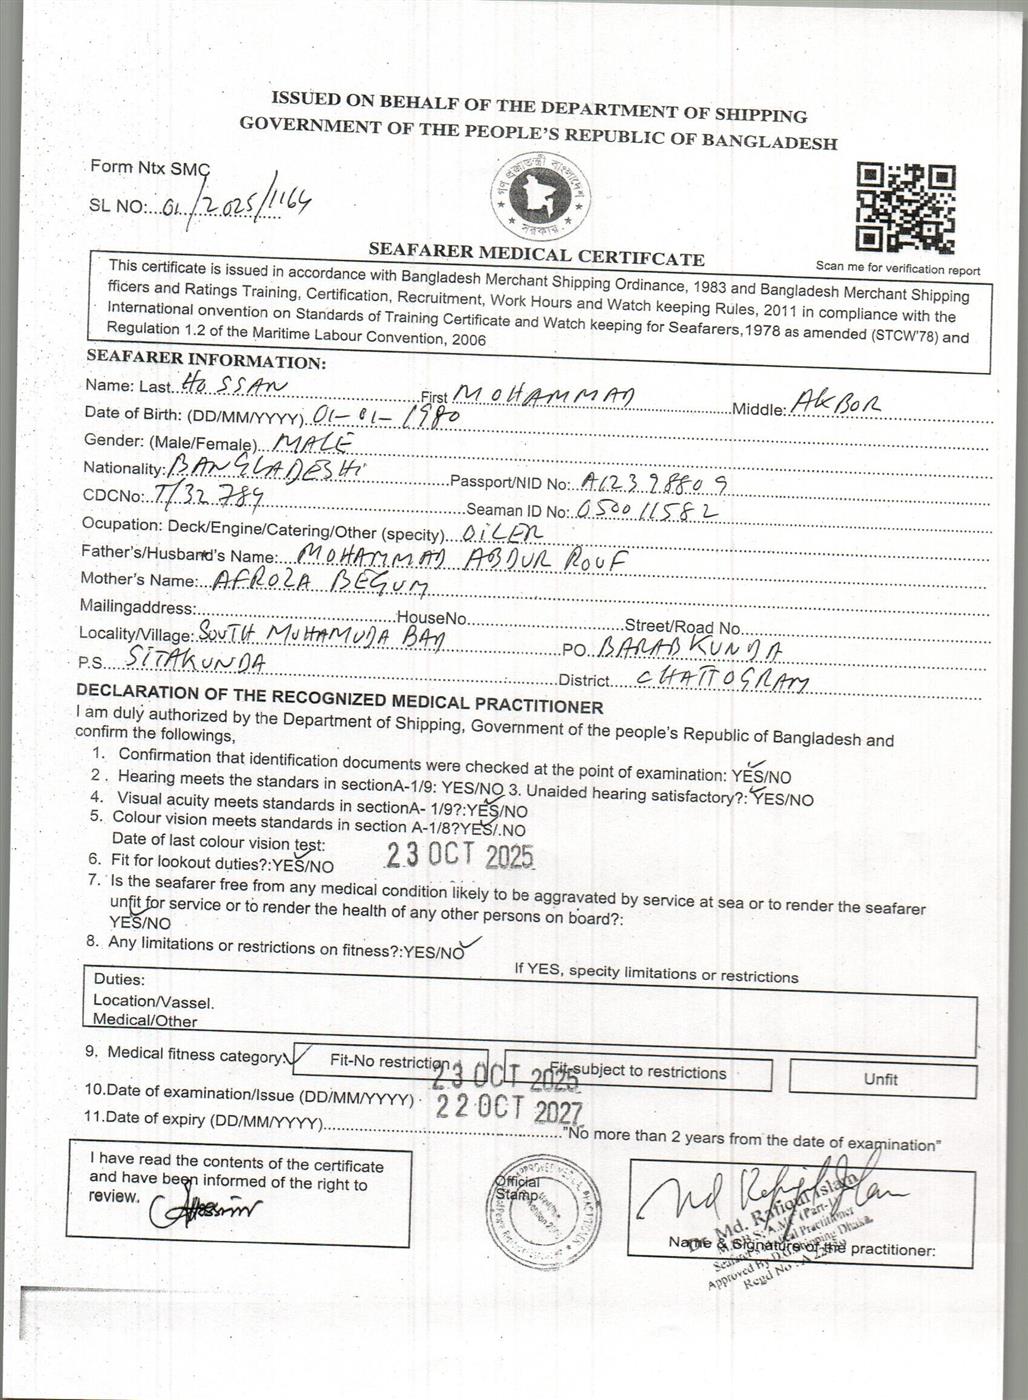 ISSUED ON BEHALF OF THE DEPARTMENT OF SHIPPING
GOVERNMENT OF THE PEOPLE'S REPUBLIC OF BANGLADESH
Form Ntx SMC
SL NO:..01/2025/1164
গণপ্রজাতন্ত্রী বাংলাদেশ
সরকার
SEAFARER MEDICAL CERTIFCATE
Scan me for verification report
This certificate is issued in accordance with Bangladesh Merchant Shipping Ordinance, 1983 and Bangladesh Merchant Shipping
fficers and Ratings Training, Certification, Recruitment, Work Hours and Watch keeping Rules, 2011 in compliance with the
International onvention on Standards of Training Certificate and Watch keeping for Seafarers,1978 as amended (STCW'78) and
Regulation 1.2 of the Maritime Labour Convention, 2006
SEAFARER INFORMATION:
Name: Last HOSSAN First MOHAMMAD Middle: AKBOR
Date of Birth: (DD/MM/YYYY) 01-01-1980
Gender: (Male/Female) MALE
Nationality: BANGLADESHi Passport/NID No: A12398809
CDCNo: T/32789 Seaman ID No: 050011582
Ocupation: Deck/Engine/Catering/Other (specify) OILER
Father's/Husband's Name: MOHAMMAD ABDUR ROUF
Mother's Name: AFROZA BEGUM
Mailingaddress: HouseNo Street/Road No
Locality/Village: SOUTH MUHAMUDA BAD PO BARABKUNDA
P.S. SITAKUNDA District CHATTOGRAM
DECLARATION OF THE RECOGNIZED MEDICAL PRACTITIONER
I am duly authorized by the Department of Shipping, Government of the people's Republic of Bangladesh and
confirm the followings,
1. Confirmation that identification documents were checked at the point of examination: YES/NO
2 . Hearing meets the standars in sectionA-1/9: YES/NO 3. Unaided hearing satisfactory?: YES/NO
4. Visual acuity meets standards in sectionA- 1/9?:YES/NO
5. Colour vision meets standards in section A-1/8?YES/.NO
Date of last colour vision test: 23 OCT 2025
6. Fit for lookout duties?:YES/NO
7. Is the seafarer free from any medical condition likely to be aggravated by service at sea or to render the seafarer
unfit for service or to render the health of any other persons on board?:
YES/NO
8. Any limitations or restrictions on fitness?:YES/NO
If YES, specify limitations or restrictions
Duties:
Location/Vassel.
Medical/Other
9. Medical fitness category: Fit-No restriction Fit-subject to restrictions Unfit
10.Date of examination/Issue (DD/MM/YYYY) 23 OCT 2025
11.Date of expiry (DD/MM/YYYY) 22 OCT 2027 "No more than 2 years from the date of examination"
I have read the contents of the certificate
and have been informed of the right to
review.
Official
Stamp
Dr. Md. Rafiqul Islam
Name & Signature of the practitioner: